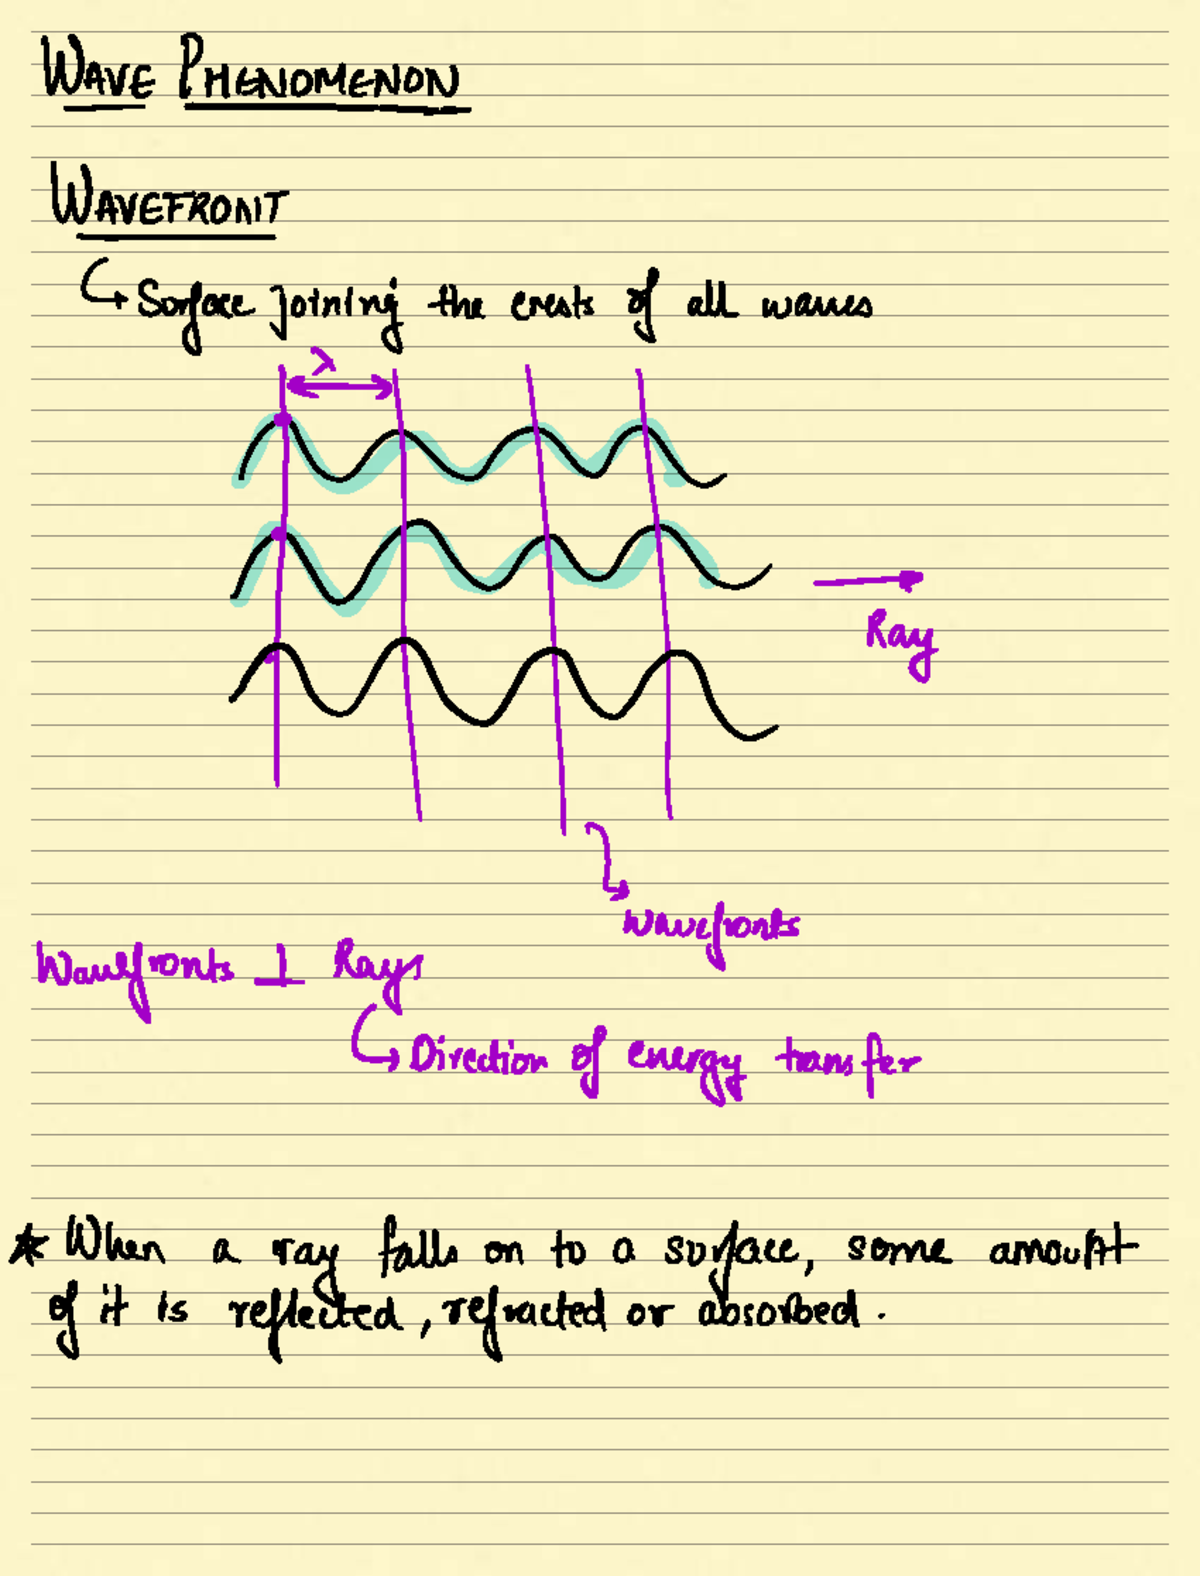 WAVE PHENOMENON
WAVEFRONT
↳ Surface joining the crests of all waves
λ
Ray
wavefronts
Wavefronts ⊥ Rays
↳ Direction of energy transfer
* When a ray falls on to a surface, some amount
of it is reflected, refracted or absorbed.